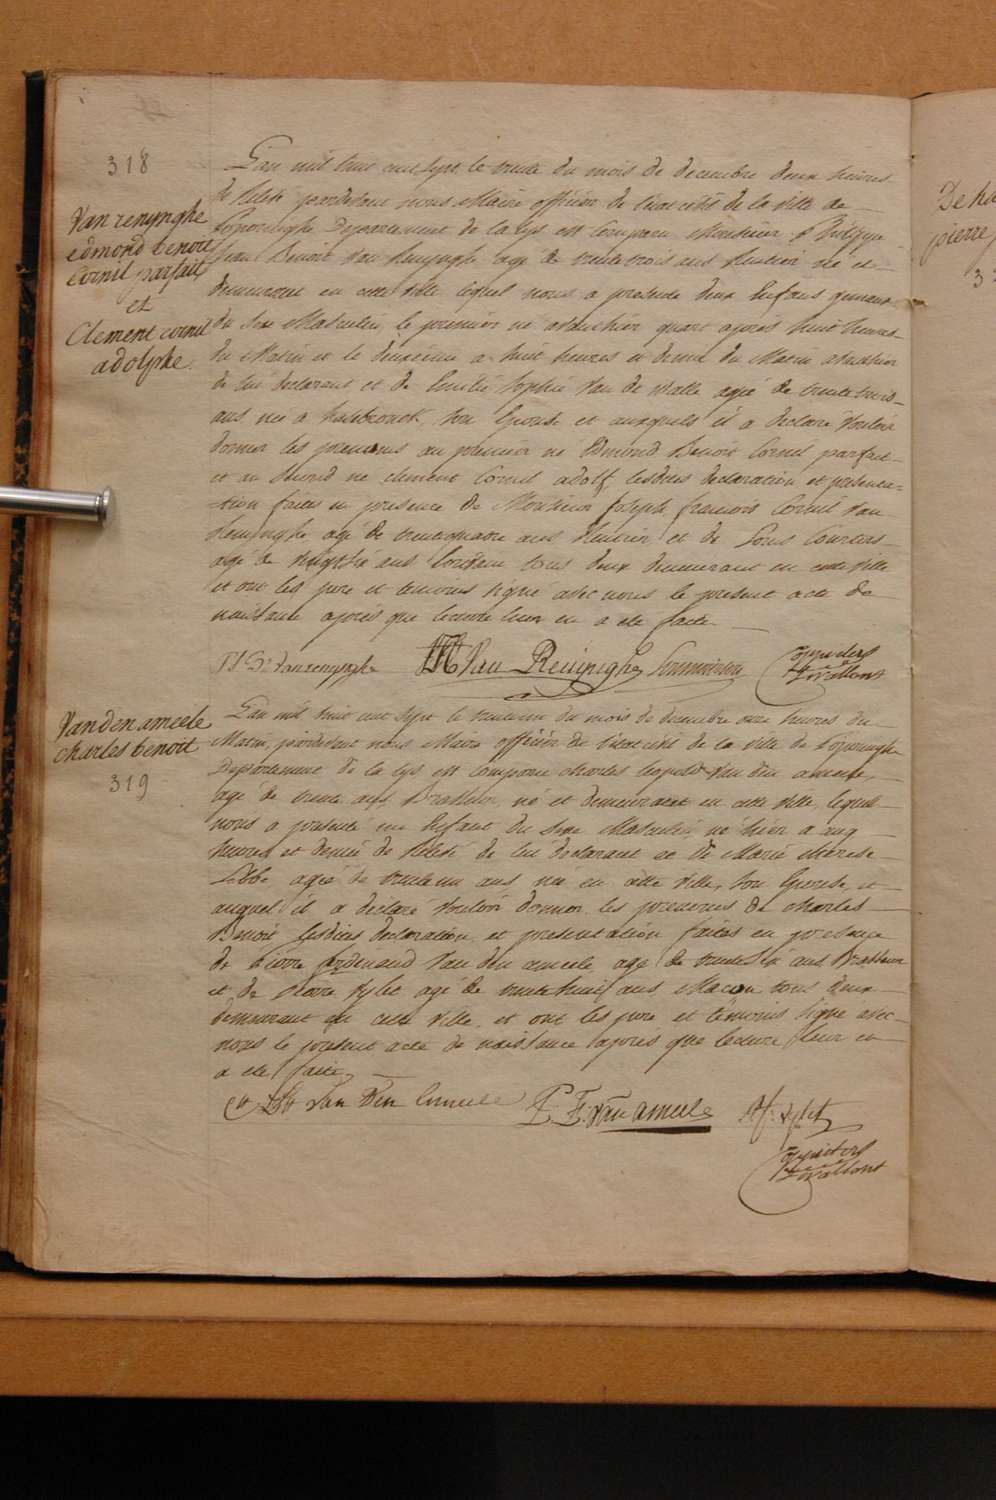 318
Van renynghe
edmond benoit
Cornil parfait
et
Clement cornil
adolphe.
L'an mil huit cent sept le trente du mois de decembre deux heures
de relevé pardevant nous Maire officier de l'état civil de la ville de
Poperinghe Departement de la Lys est comparu Monsieur Philippe
Jean Benoit Van Renynghe agé de trente trois ans Rentier né et
demeurant en cette ville lequel nous a presenté deux Enfans gemeaux
du sexe Masculin, le premier né avanthier quart après huit heures
du Matin et le deuxieme a huit heures et demie du Matin avanthier
de lui declarant et de Emilie Sophie Van de Walle agée de trente trois
ans née a hazebrouck, son Epouse et auxquels il a declaré vouloir
donner les prenoms au premier né Edmond Benoit Cornil parfait
et au second né clement Cornil adolf, lesdites declaration et presenta-
tion faites en presence de Monsieur Joseph francois Cornil Van
Renynghe agé de trente quatre ans Rentier et de Louis
agé de ans tous deux demeurant en cette ville
et ont les pere et temoins signé avec nous le present acte de
naissance après que lecture leur en a été faite
P. J. Bt. Vanrenynghe Van Renynghe
Van den ameele
charles benoit
319
L'an mil huit cent sept le trente un du mois de decembre onze heures du
Matin, pardevant nous Maire officier de l'état civil de la ville de Poperinghe
Departement de la Lys est comparu charles Leopold Van den ameele,
agé de trente ans, Brasseur, né et demeurant en cette ville, lequel
nous a presenté un Enfant du sexe Masculin né hier a cinq
heures et demie de relevé de lui declarant et de Marie therese
Lebbe agée de trente un ans née en cette ville, son Epouse, et
auquel il a declaré vouloir donner les prenoms de charles
Benoit lesdites declaration et presentation faites en presence
de Pierre ferdinand Van den ameele agé de trente six ans Brasseur
et de agé de trente huit ans Macon tous deux
demeurant en cette ville, et ont les pere et témoins signé avec
nous le present acte de naissance après que lecture leur en
a été faite
Van Den Ameele P. F. Van ameele
De ha
pierre
3